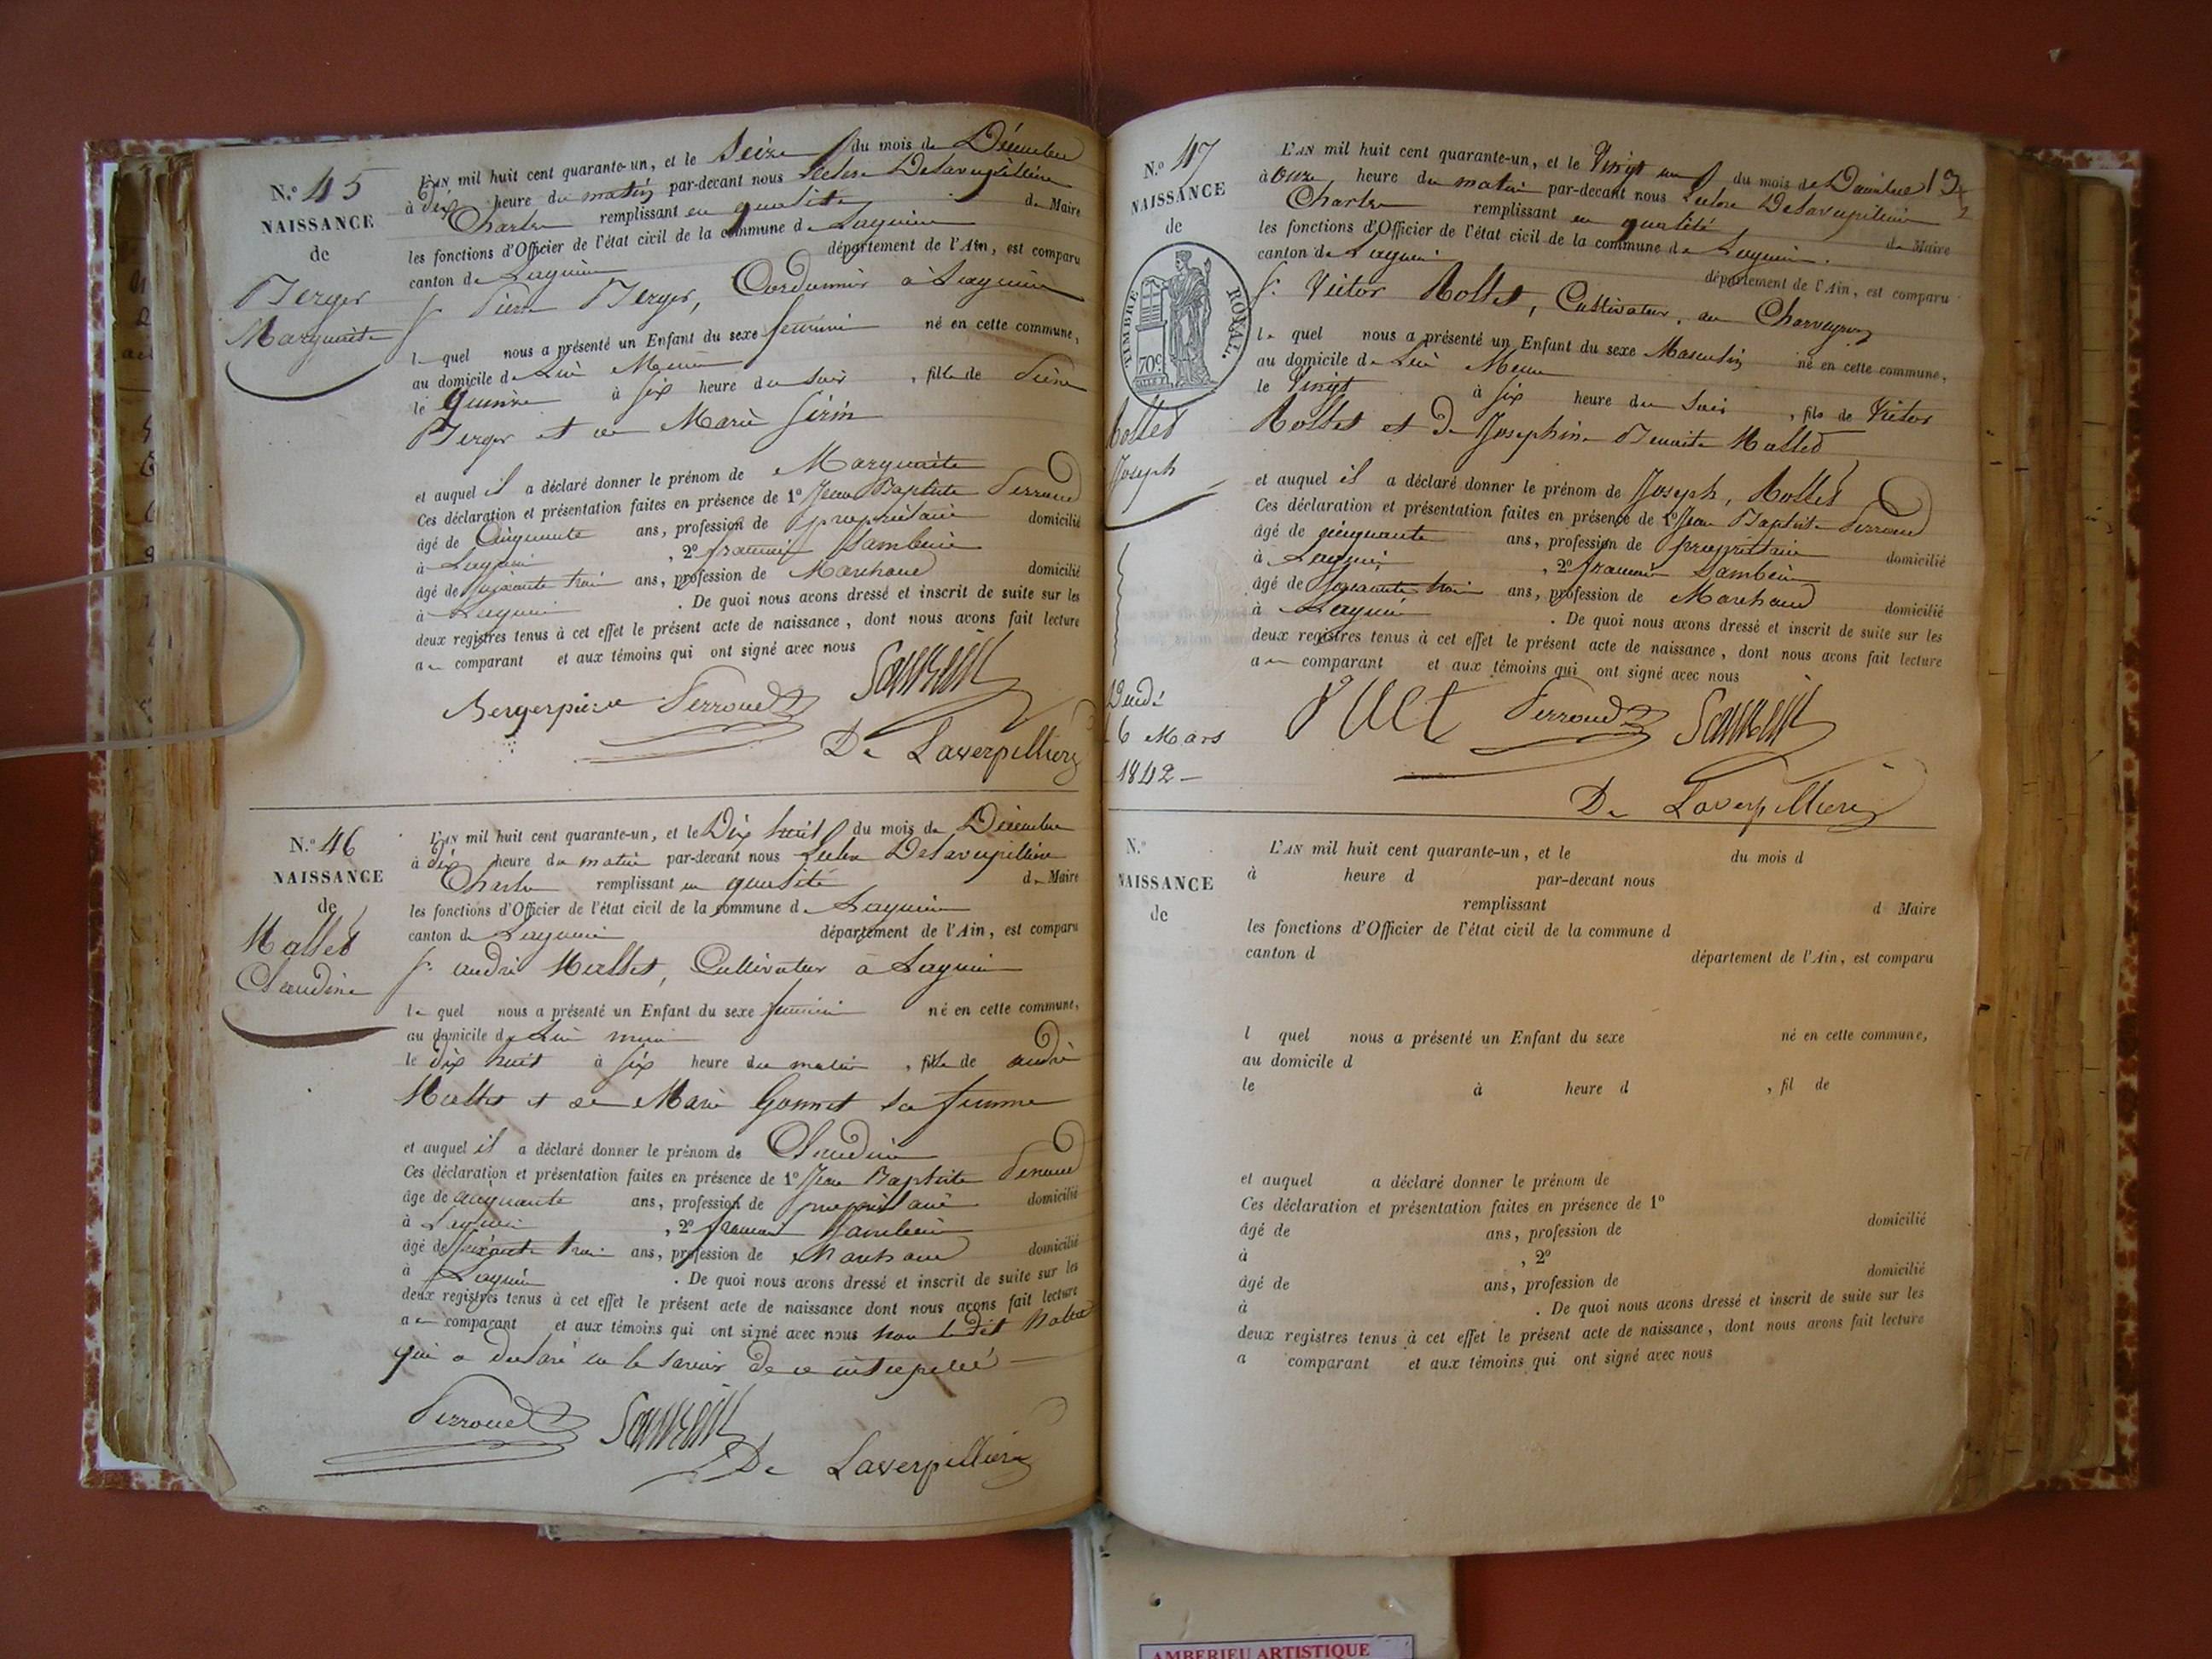 N.° 45
NAISSANCE
de
Berger
Marguerite
L'AN mil huit cent quarante-un, et le Seize du mois de Décembre
à dix heure du matin par-devant nous Delaverpillière
Charles remplissant en qualité de Maire
les fonctions d'Officier de l'état civil de la commune de Lagnieu
canton de Lagnieu département de l'Ain, est comparu
s.r Pierre Berger, Cordonnier à Lagnieu
le quel nous a présenté un Enfant du sexe feminin né en cette commune,
au domicile de Lui Meme
le quinze à six heure du soir, fille de Pierre
Berger et de Marie
et auquel il a déclaré donner le prénom de Marguerite
Ces déclaration et présentation faites en présence de 1° Jean Baptiste Perroud
âgé de Cinquante ans, profession de propriétaire domicilié
à Lagnieu, 2° francois Sambein
âgé de soixante trois ans, profession de Marchand domicilié
à Lagnieu. De quoi nous avons dressé et inscrit de suite sur les
deux registres tenus à cet effet le présent acte de naissance, dont nous avons fait lecture
au comparant et aux témoins qui ont signé avec nous
Bergerpierre Perroud Sambein
De Laverpilliere
N.° 46
NAISSANCE
de
Mallet
Claudine
L'AN mil huit cent quarante-un, et le Dix huit du mois de Décembre
à dix heure du matin par-devant nous Delaverpillière
Charles remplissant en qualité de Maire
les fonctions d'Officier de l'état civil de la commune de Lagnieu
canton de Lagnieu département de l'Ain, est comparu
s.r andré Mallet, Cultivateur à Lagnieu
le quel nous a présenté un Enfant du sexe feminin né en cette commune,
au domicile de Lui meme
le dix huit à six heure du matin, fille de andré
Mallet et de Marie Gonnet sa femme
et auquel il a déclaré donner le prénom de Claudine
Ces déclaration et présentation faites en présence de 1° Jean Baptiste Perroud
âgé de cinquante ans, profession de propriétaire domicilié
à Lagnieu, 2° francois Sambein
âgé de soixante trois ans, profession de Marchand domicilié
à Lagnieu. De quoi nous avons dressé et inscrit de suite sur les
deux registres tenus à cet effet le présent acte de naissance dont nous avons fait lecture
au comparant et aux témoins qui ont signé avec nous non le dit Mallet
qui a declaré ne le savoir de ce interpellé
Perroud Sambein
De Laverpilliere
13
N.° 47
NAISSANCE
de
TIMBRE ROYAL.
70c.
Rollet
Joseph
Décédé
6 Mars
1842
L'AN mil huit cent quarante-un, et le Vingt un du mois de Décembre
à onze heure du matin par-devant nous Delaverpillière
Charles remplissant en qualité de Maire
les fonctions d'Officier de l'état civil de la commune de Lagnieu.
canton de Lagnieu département de l'Ain, est comparu
s.r Victor Rollet, Cultivateur, au Charveyron
le quel nous a présenté un Enfant du sexe Masculin né en cette commune,
au domicile de Lui Meme
le Vingt à six heure du soir, fils de Victor
Rollet et de Josephine Benoite Mallet
et auquel il a déclaré donner le prénom de Joseph, Rollet
Ces déclaration et présentation faites en présence de 1° Jean Baptiste Perroud
âgé de cinquante ans, profession de propriétaire domicilié
à Lagnieu, 2° francois Sambein
âgé de soixante trois ans, profession de Marchand domicilié
à Lagnieu. De quoi nous avons dressé et inscrit de suite sur les
deux registres tenus à cet effet le présent acte de naissance, dont nous avons fait lecture
au comparant et aux témoins qui ont signé avec nous
Perroud Sambein
De Laverpilliere
N.°
NAISSANCE
de
L'AN mil huit cent quarante-un, et le du mois d
à heure d par-devant nous
remplissant d Maire
les fonctions d'Officier de l'état civil de la commune d
canton d département de l'Ain, est comparu
l quel nous a présenté un Enfant du sexe né en cette commune,
au domicile d
le à heure d, fil de
et auquel a déclaré donner le prénom de
Ces déclaration et présentation faites en présence de 1°
âgé de ans, profession de domicilié
à, 2°
âgé de ans, profession de domicilié
à. De quoi nous avons dressé et inscrit de suite sur les
deux registres tenus à cet effet le présent acte de naissance, dont nous avons fait lecture
a comparant et aux témoins qui ont signé avec nous
AMBERIEU ARTISTIQUE